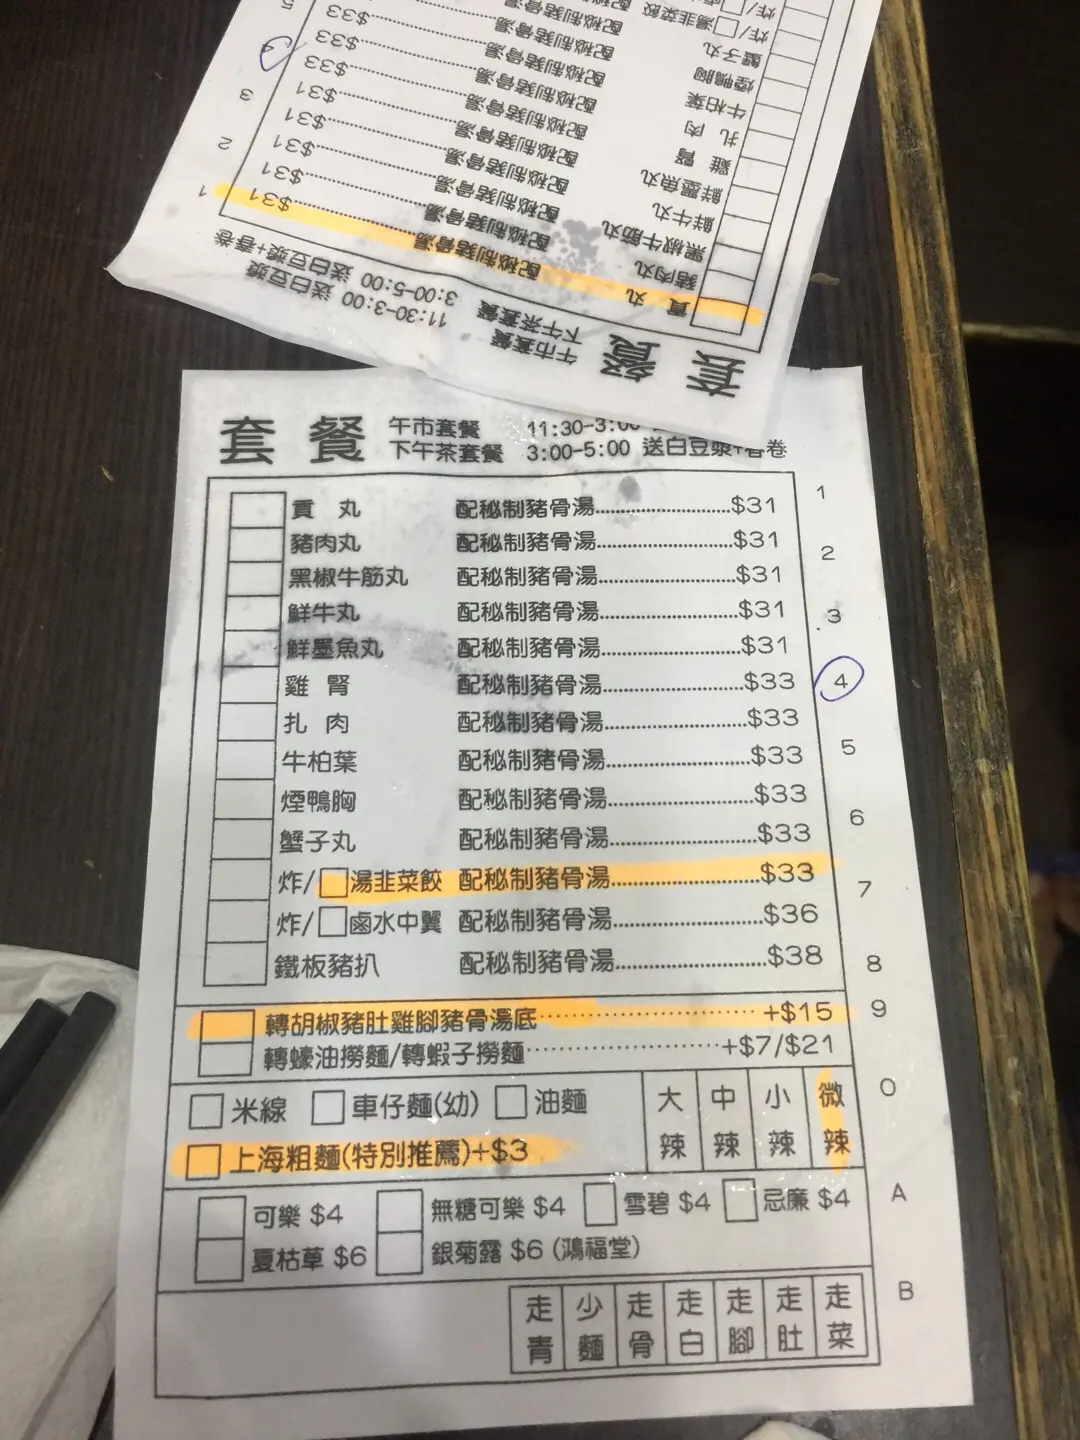 5
炸/
炸/ 湯韭菜餃 配秘制豬骨湯 $33
蟹子丸 配秘制豬骨湯 $33
煙鴨胸 配秘制豬骨湯 $33
牛柏葉 配秘制豬骨湯
扎 肉 配秘制豬骨湯
雞 腎 配秘制豬骨湯
3
鮮墨魚丸 配秘制豬骨湯 $31
鮮牛丸 配秘制豬骨湯 $31
2
黑椒牛筋丸 配秘制豬骨湯 $31
豬肉丸 配秘制豬骨湯 $31
1
貢 丸 配秘制豬骨湯 $31
套 餐
午市套餐 11:30-3:00 送白豆漿
下午茶套餐 3:00-5:00 送白豆漿+春卷
套 餐
午市套餐 11:30-3:00
下午茶套餐 3:00-5:00 送白豆漿+春卷
貢 丸 配秘制豬骨湯..................$31 1
豬肉丸 配秘制豬骨湯..................$31
黑椒牛筋丸 配秘制豬骨湯..................$31 2
鮮牛丸 配秘制豬骨湯..................$31 3
鮮墨魚丸 配秘制豬骨湯..................$31
雞 腎 配秘制豬骨湯..................$33 4
扎 肉 配秘制豬骨湯..................$33
牛柏葉 配秘制豬骨湯..................$33 5
煙鴨胸 配秘制豬骨湯..................$33
蟹子丸 配秘制豬骨湯..................$33 6
炸/ 湯韭菜餃 配秘制豬骨湯..................$33 7
炸/ 鹵水中翼 配秘制豬骨湯..................$36
鐵板豬扒 配秘制豬骨湯..................$38 8
轉胡椒豬肚雞腳豬骨湯底..................+$15 9
轉蠔油撈麵/轉蝦子撈麵..................+$7/$21
米線 車仔麵(幼) 油麵
上海粗麵(特別推薦)+$3
大辣 中辣 小辣 微辣 0
可樂 $4 無糖可樂 $4 雪碧 $4 忌廉 $4 A
夏枯草 $6 銀菊露 $6 (鴻福堂)
走青 少麵 走骨 走白 走腳 走肚 走菜 B